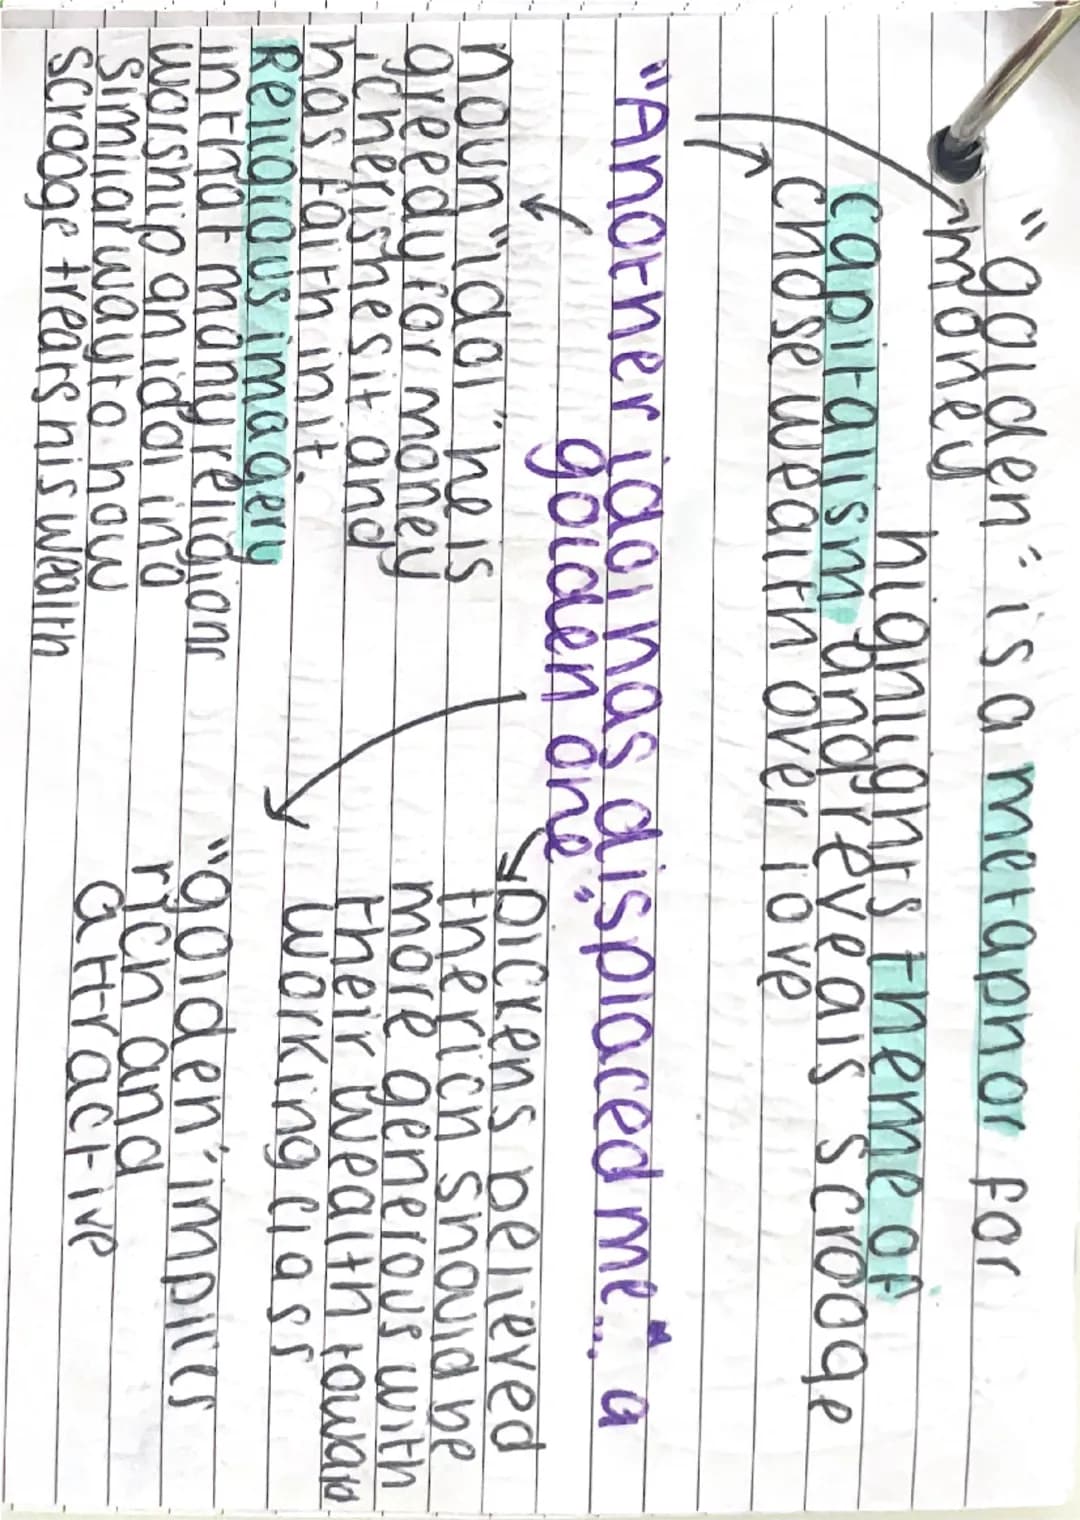 "golden" is a metaphor for
money
highlights theme of
capitalism and reveals scrooge
chose wealth over love
"Another idol has displaced me... a
golden one"
noun "idol" he is
greedy for money
, cherishes it and
has faith in it.
Religious imagery
in that many religions
worship an idol in a
similar way to how
scrooge treats his wealth
Dickens believed
the rich should be
more generous with
their wealth toward
working class
"golden" implies
rich and
attractive